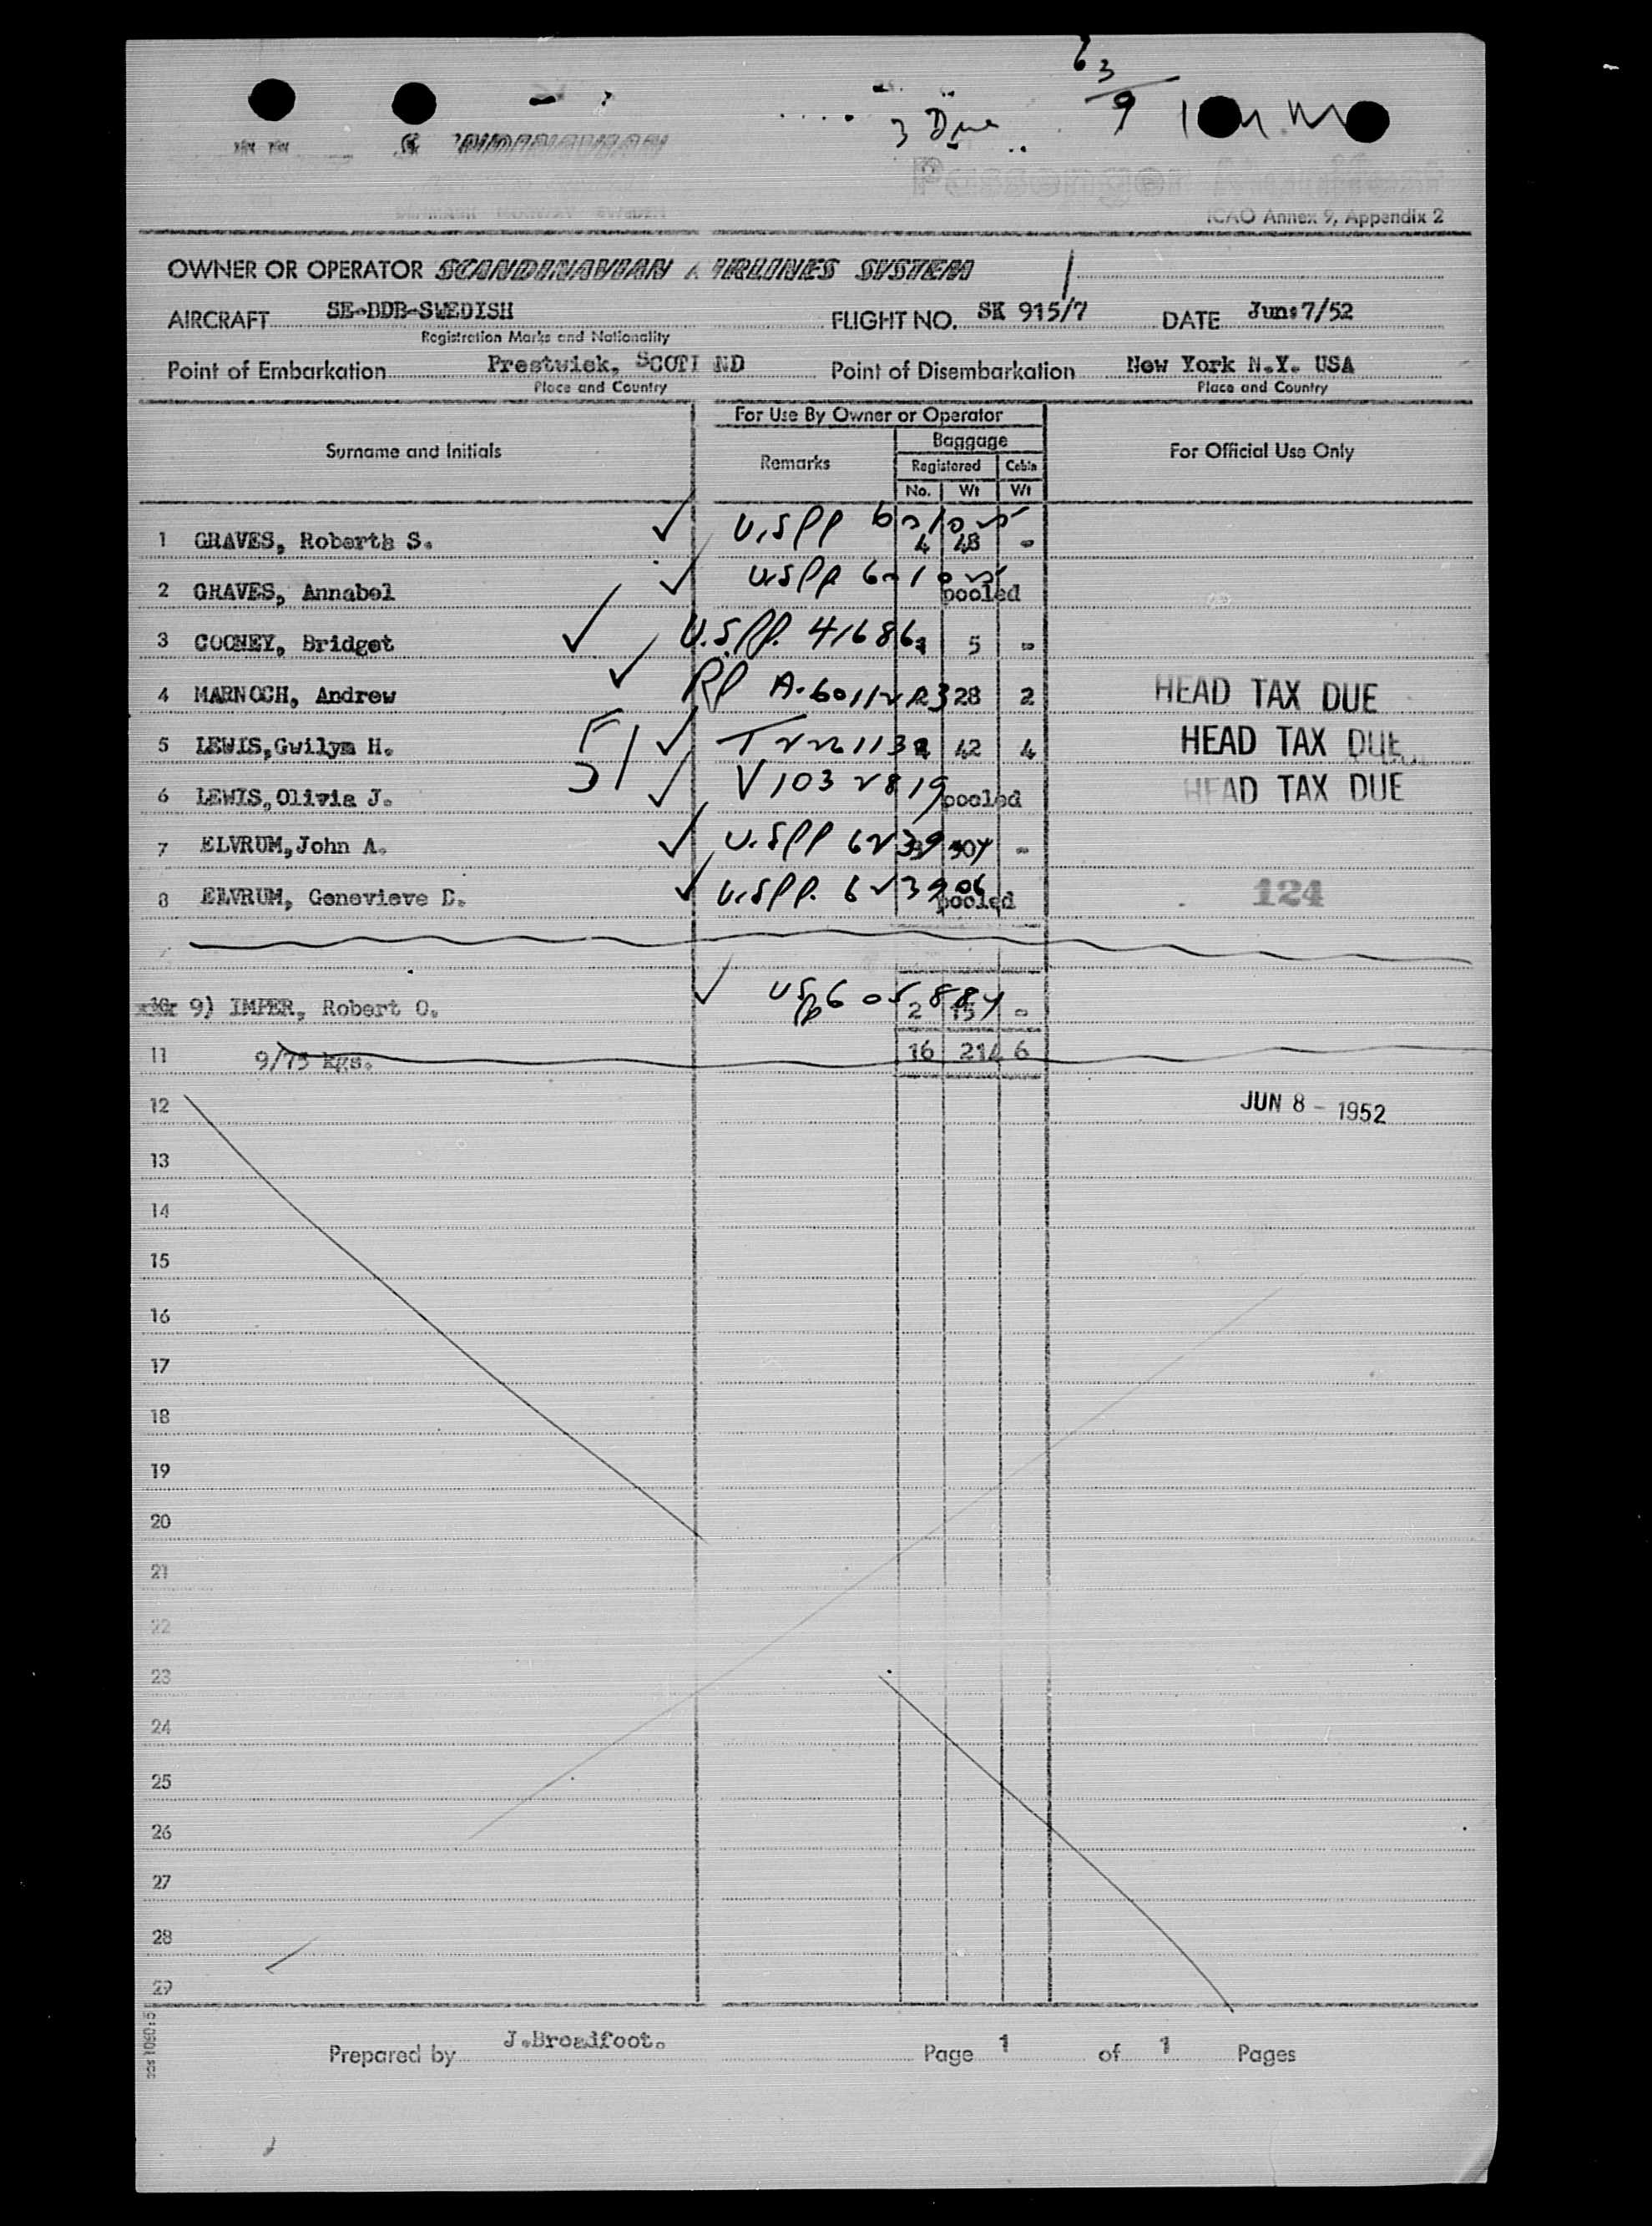 6 3
9
3 Due
ICAO Annex 9, Appendix 2
OWNER OR OPERATOR SCANDINAVIAN AIRLINES SYSTEM
AIRCRAFT SE-BDB-SWEDISH FLIGHT NO. SK 915/7 DATE Jun:7/52
Registration Marks and Nationality
Point of Embarkation Prestwick, SCOTL ND Point of Disembarkation New York N.Y. USA
Place and Country Place and Country
For Use By Owner or Operator
Surname and Initials Remarks Baggage For Official Use Only
Registered Cabin
No. Wt Wt
1 GRAVES, Roberta S. U.S PP 4 48 -
2 GRAVES, Annabel U.S PP pooled
3 COONEY, Bridget U.S. PP. 41686 5 -
4 MARNOCH, Andrew RP 28 2 HEAD TAX DUE
5 LEWIS,Gwilym H. 42 4 HEAD TAX DUE
6 LEWIS,Olivia J. V 1032819 pooled HEAD TAX DUE
7 ELVRUM,John A. U.S PP -
8 ELVRUM, Genevieve D. U.S PP. 623906 pooled 124
9) IMPER, Robert O. US PP 2 15 -
11 9/75 kgs. 16 214 6
12 JUN 8 - 1952
13
14
15
16
17
18
19
20
21
22
23
24
25
26
27
28
29
Prepared by J.Broadfoot. Page 1 of 1 Pages